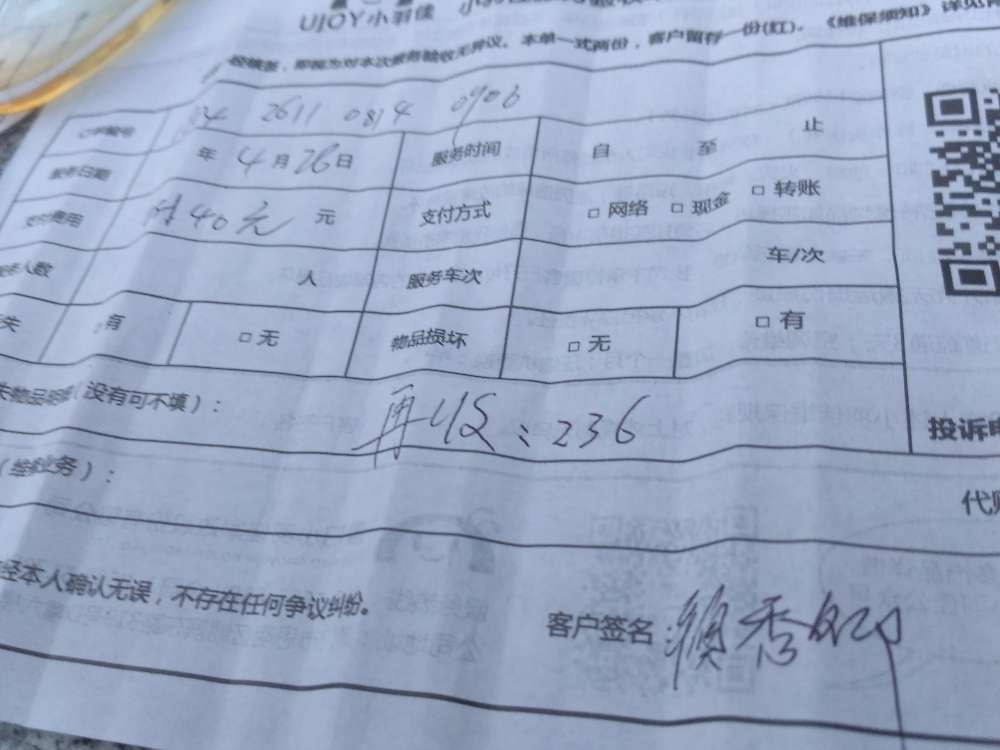 UJOY小羽佳
即视为对本次服务验收无异议。本单一式两份，客户留存一份(红)。《维保须知》详见
订单编号 2611 0814 0906
服务日期 年 4月26日 服务时间 自 至 止
支付费用 40元 元 支付方式 □网络 □现金 □转账
务人数 人 服务车次 车/次
失 □有 □无 物品损坏 □无 □有
(没有可不填)： 再收：236
投诉电
(维修业务)：
代
经本人确认无误，不存在任何争议纠纷。
客户签名：